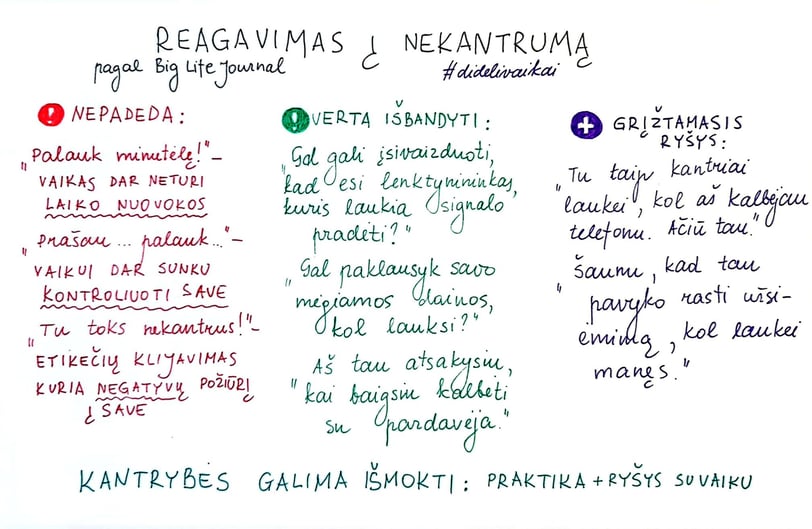 REAGAVIMAS Į NEKANTRUMĄ
pagal Big Life Journal
#didelivaikai
NEPADEDA:
„Palauk minutėlę!"–
VAIKAS DAR NETURI
LAIKO NUOVOKOS
„Prašau... palauk..."–
VAIKUI DAR SUNKU
KONTROLIUOTI SAVE
„Tu toks nekantrus!"–
ETIKEČIŲ KLIJAVIMAS
KURIA NEGATYVŲ POŽIŪRĮ
Į SAVE
VERTA IŠBANDYTI:
„Gal gali įsivaizduoti,
kad esi lenktynininkas,
kuris laukia signalo
pradėti?"
„Gal paklausyk savo
mėgiamos dainos,
kol lauksi?"
„Aš tau atsakysiu,
kai baigsiu kalbėti
su pardavėja."
GRĮŽTAMASIS
RYŠYS:
„Tu taip kantriai
laukei, kol aš kalbėjau
telefonu. Ačiū tau."
„Šaunu, kad tau
pavyko rasti užsi-
ėmimą, kol laukei
manęs."
KANTRYBĖS GALIMA IŠMOKTI: PRAKTIKA + RYŠYS SU VAIKU